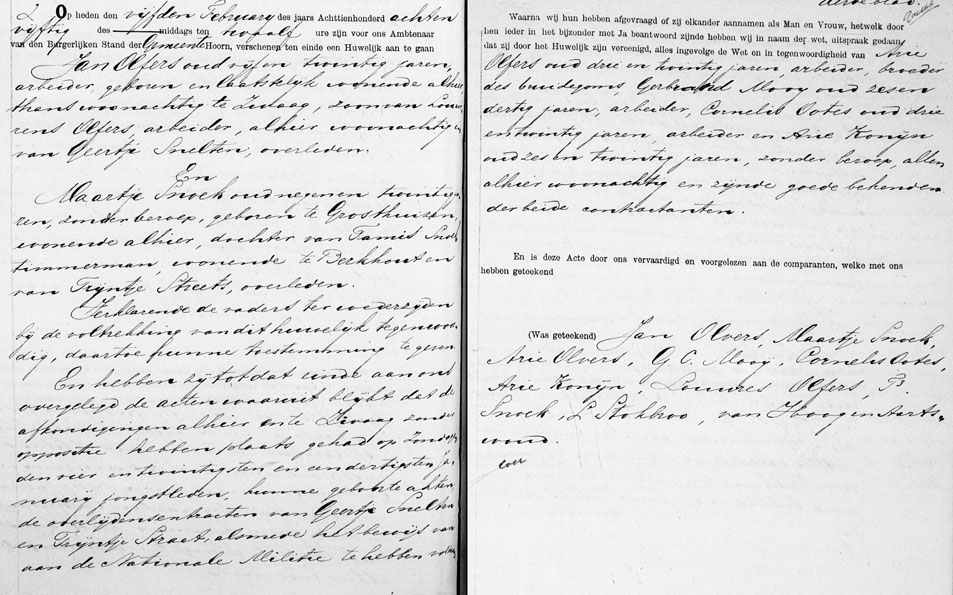 Op heden den vijfden February des jaars Achttienhonderd achten
vijftig des middags ten twaalf ure zijn voor ons Ambtenaar
van den Burgerlijken Stand der Gemeente Hoorn, verschenen ten einde een Huwelijk aan te gaan
Jan Olfers oud vijf en twintig jaren,
arbeider, geboren en laatstelijk wonende alhier
thans woonachtig te Zwaag, zoon van Louw
rens Olfers, arbeider, alhier woonachtig en
van Geertje Snelten, overleden.
En
Maartje Snoek oud negen en twintig ja
ren, zonder beroep, geboren te Grosthuizen,
wonende alhier, dochter van Tamis Snoek
timmerman, wonende te Berkhout en
van Trijntje Streets, overleden.
Verklarende de vaders ter wederzyden
bij de voltrekking van dit huwelijk tegenwoor
dig, daartoe hunne toestemming te geven
En hebben zij tot dat einde aan ons
overgelegd de acten waaruit blijkt dat de
afkondigingen alhier en te Zwaag zonder
oppositie hebben plaats gehad op Zondag
den vier en twintigsten en een dertigsten Ja
nuarij jongstleden, hunne geboorte acten
de overlijdensextracten van Geertje Snelten
en Trijntje Straet, alsmede het bewijs van
aan de Nationale Militie te hebben vol
derde blad.
Waarna wij hun hebben afgevraagd of zij elkander aannamen als Man en Vrouw, hetwelk door
hen ieder in het bijzonder met Ja beantwoord zijnde hebben wij in naam der wet, uitspraak gedaan
dat zij door het Huwelijk zijn vereenigd, alles ingevolge de Wet en in tegenwoordigheid van Arie
Olfers oud drie en twintig jaren, arbeider, broeder
des bruidegoms Gerbrand Mooy oud zes en
dertig jaren, arbeider, Cornelis Ootes oud drie
en twintig jaren, arbeider en Arie Konijn
oud zes en twintig jaren, zonder beroep, allen
alhier woonachtig en zijnde goede bekenden
der beide contractanten.
En is deze Acte door ons vervaardigd en voorgelezen aan de comparanten, welke met ons
hebben geteekend
(Was geteekend) Jan Olvers, Maartje Snoek,
Arie Olvers, G. C. Mooy, Cornelis Ootes,
Arie Konijn, Louwres Olfers, T.
Snoek, P. Stokbroo, van Hoogen Aarts-
woud.